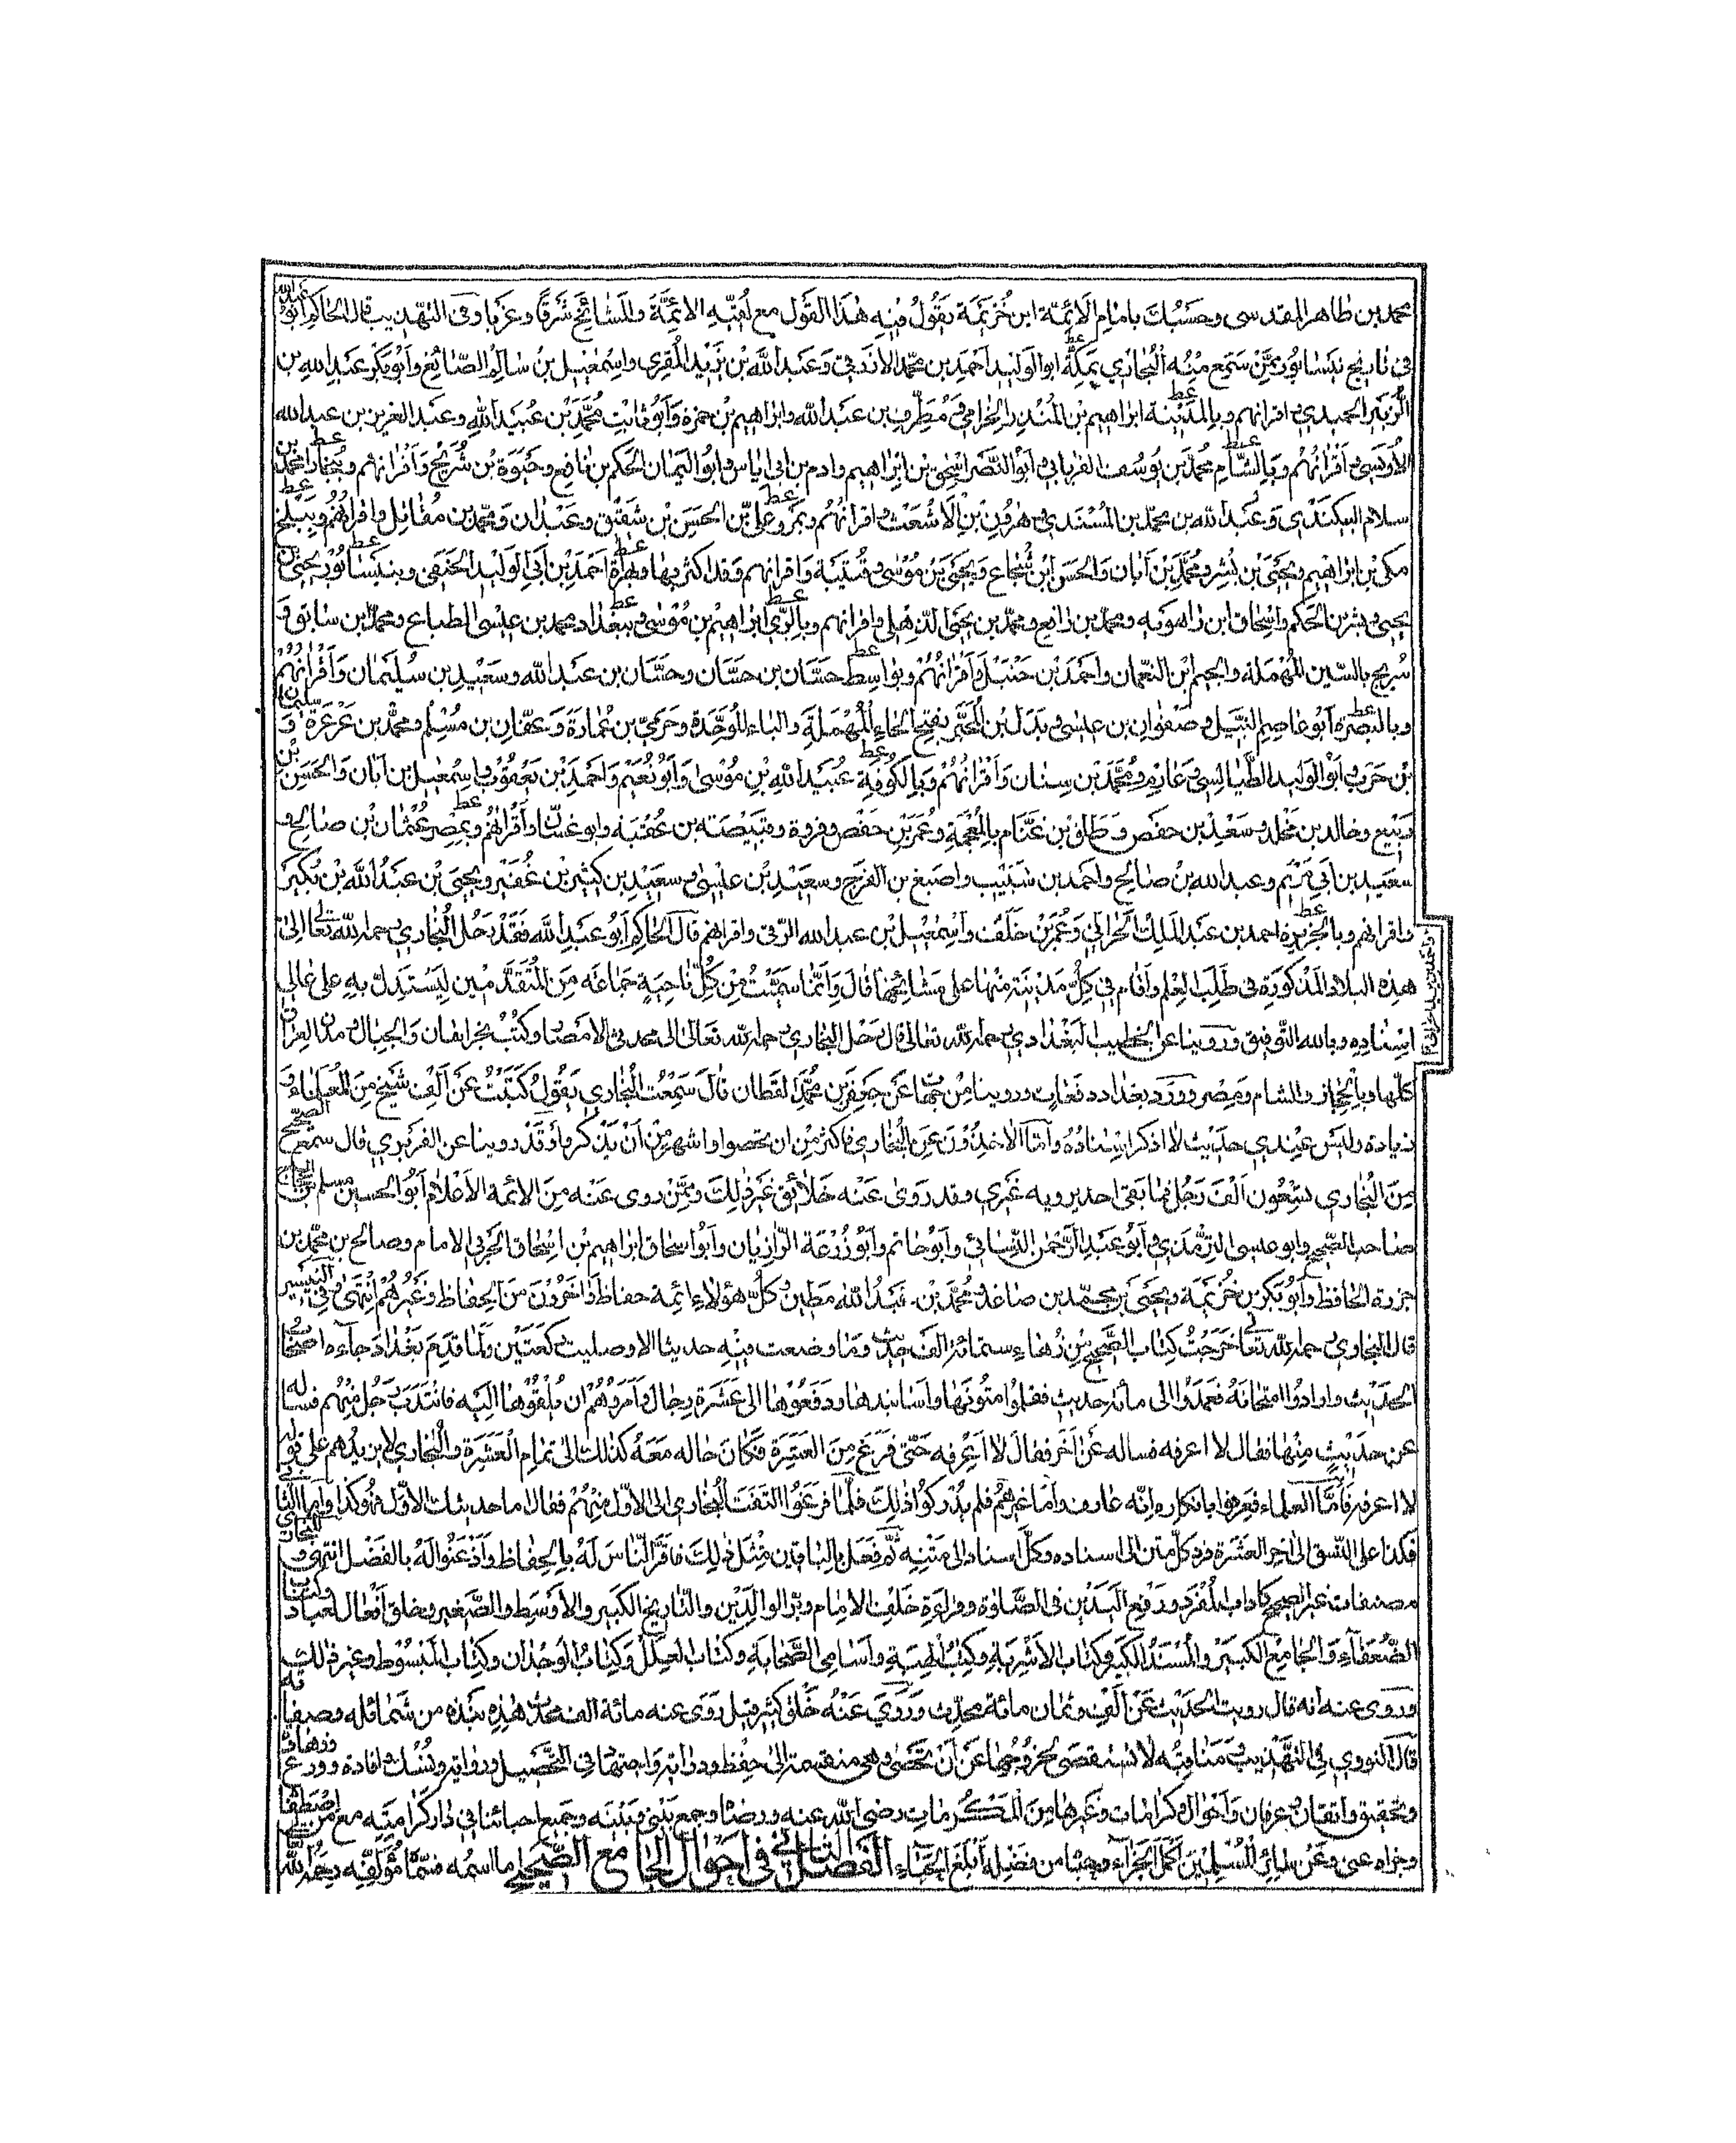 محمد بن طاهر المقدسى وحسبك بامام الائمة ابن خزيمة يقول فيه هذا القول مع لقيه الائمة والمشائخ شرقا وغربا وفى التهذيب قال الحاكم ابو عبد الله
فى تاريخ نيسابور ممن سمع منه البخاري بمكة ابو الوليد احمد بن محمد الازرقي وعبد الله بن يزيد المقرى واسمعيل بن سالم الصائغ وابو بكر عبد الله بن
الزبير الحميدي واقرانهم وبالمدينة ابراهيم بن المنذر الخزامي ومطرف بن عبد الله وابراهيم بن حمزه وابو ثابت محمد بن عبيد الله وعبد العزيز بن عبد الله
الاويسي واقرانهم وبالشام محمد بن يوسف الفريابي وابو النصر اسحق بن ابراهيم وادم بن ابى اياس وابو اليمان الحكم بن نافع وحيوة بن شريح واقرانهم وببخارا محمد بن
سلام البيكندي وعبد الله بن محمد بن المسندي وهرون بن الاشعث واقرانهم وبمرو على بن الحسن بن شقيق وعبدان ومحمد بن مقاتل واقرانهم وببلخ
مكى بن ابراهيم ويحيى بن بشر ومحمد بن أبان والحسن ابن شجاع ويحيى بن موسى وقتيبة واقرانهم وقد اكثر بها وبهراة احمد بن أبي الوليد الحنفى وبنيسابور يحيى بن
يحيى وبشر بن الحكم واسحاق ابن راهويه ومحمد بن رافع ومحمد بن يحيى الذهلى واقرانهم وبالري ابراهيم بن موسى وببغداد محمد بن عيسى الطباع ومحمد بن سابق و
سريج بالسين المهملة والجيم ابن النعمان واحمد بن حنبل واقرانهم وبواسط حسان بن حسان وحسان بن عبد الله وسعيد بن سليمان واقرانهم
وبالبصرة ابو عاصم النبيل وصفوان بن عيسى وبدل بن المحبر بفتح الحاء المهملة والباء الموحدة وحرمي بن عمارة وعفان بن مسلم ومحمد بن عرعرة وسليمان
بن حرب وابو الوليد الطيالسي وعارم ومحمد بن سنان واقرانهم وبالكوفة عبيد الله بن موسى وأبو نعيم واحمد بن يعقوب واسمعيل بن أبان والحسن بن
ربيع وخالد بن مخلد وسعيد بن حفص وطلق بن غنام بالمعجمة وعمر بن حفص وفروة وقبيصة بن عقبة وابو غسان واقرانهم وبمصر عثمان بن صالح و
سعيد بن أبي مريم وعبد الله بن صالح واحمد بن شبيب واصبغ بن الفرج وسعيد بن عيسى وسعيد بن كثير بن عفير ويحيى بن عبد الله بن بكير
واقرانهم وبالجزيرة احمد بن عبد الملك الحراني وعمر بن خلف واسمعيل بن عبد الله الرقى واقرانهم قال الحاكم ابو عبد الله فقد رحل البخاري رحمه الله تعالى الى
هذه البلاد المذكورة فى طلب العلم واقام في كل مدينة منها على مشائخها قال وانما سميت من كل ناحية جماعة من المتقدمين ليستدل به على عالى
اسناده وبالله التوفيق وروينا عن الخطيب البغدادي رحمه الله تعالى قال رحل البخاري رحمه الله تعالى الى محدثى الامصار وكتب بخراسان والجبال ومدن العراق
كلها وبالحجاز والشام ومصر وورد بغداد دفعات وروينا من جهات عن جعفر بن محمد القطان قال سمعت البخاري يقول كتبت عن ألف شيخ من العلماء و
زيادة وليس عندي حديث لا اذكر اسناده وأما الاخذون عن البخاري فاكثر من ان يحصوا واشهر من أن يذكروا وقد روينا عن الفربري قال سمع الصحيح
من البخاري تسعون الف رجل فما بقى احد يرويه غيري وقد روى عنه خلائق غير ذلك وممن روى عنه من الائمة الأعلام أبو الحسين مسلم بن الحجاج
صاحب الصحيح وابو عيسى الترمذي وأبو عبد الرحمن النسائي وأبو حاتم وأبو زرعة الرازيان وأبو اسحاق ابراهيم بن اسحاق الحربي الامام وصالح بن محمد بن
جزرة الحافظ وأبو بكر بن خزيمة ويحيى بن محمد بن صاعد ومحمد بن عبد الله مطين وكل هؤلاء ائمة حفاظ واخرون من الحفاظ وغيرهم انتهى وفى التيسير
قال البخاري رحمه الله تعالى خرجت كتاب الصحيح من زهاء ستمائة الف حديث وما وضعت فيه حديثا الا وصليت ركعتين ولما قدم بغداد جاءه اصحاب
الحديث وارادوا امتحانه فعمدوا الى مائة حديث فقلبوا متونها واسانيدها ودفعوها الى عشرة رجال وامروهم ان يلقوها اليه فانتدب رجل منهم فساله
عن حديث منها فقال لا اعرفه فساله عن آخر فقال لا اعرفه حتى فرغ من العشرة فكان حاله معه كذلك الى تمام العشرة والبخاري لا يزيدهم على قوله
لا اعرفه فأما العلماء فعرفوا بانكاره انه عارف واما غيرهم فلم يدركوا ذلك فلما فرغوا التفت البخاري الى الاول منهم فقال اما حديثك الاول فهو كذا واما الثانى
فكذا على النسق الى اخر العشرة فرد كل متن الى اسناده وكل اسناد الى متنه ثم فعل بالباقين مثل ذلك فاقر الناس له بالحفاظ وأذعنوا له بالفضل انتهى وللبخاري
مصنفات غير الصحيح كاداب المفرد ورفع اليدين فى الصلوة وقراءة خلف الامام وبر الوالدين والتاريخ الكبير والأوسط والصغير وخلق أفعال العباد وكتاب
الضعفاء والجامع الكبير والمسند الكبير وكتاب الاشربة وكتب الهبة وأسامى الصحابة وكتاب العلل وكتاب الوحدان وكتاب المبسوط وغير ذلك
وروى عنه انه قال رويت الحديث عن الف وثمان مائة محدث وروي عنه خلق كثير قيل روى عنه مائة الف محدث هذه نبذه من شمائله وصفاته
قال النووي في التهذيب ومناقبه لا تستقصى لخروجها عن أن تحصى وهى منقسمة إلى حفظ ودراية واجتهاد في التحصيل ورواية ونسك وافادة وورع وزهادة
وتحقيق واتقان وعرفان وأحوال وكرامات وغيرها من المكرمات رضى الله عنه وارضاه وجمع بيني وبينه وجميع احبائنا في دار كرامته مع من اصطفى
وجزاه عنى وعن سائر المسلمين أكمل الجزاء وحبانا من فضله أبلغ الحباء الفصل الثاني في احوال الجامع الصحيح اما اسمه سماه مؤلفه رحمه الله